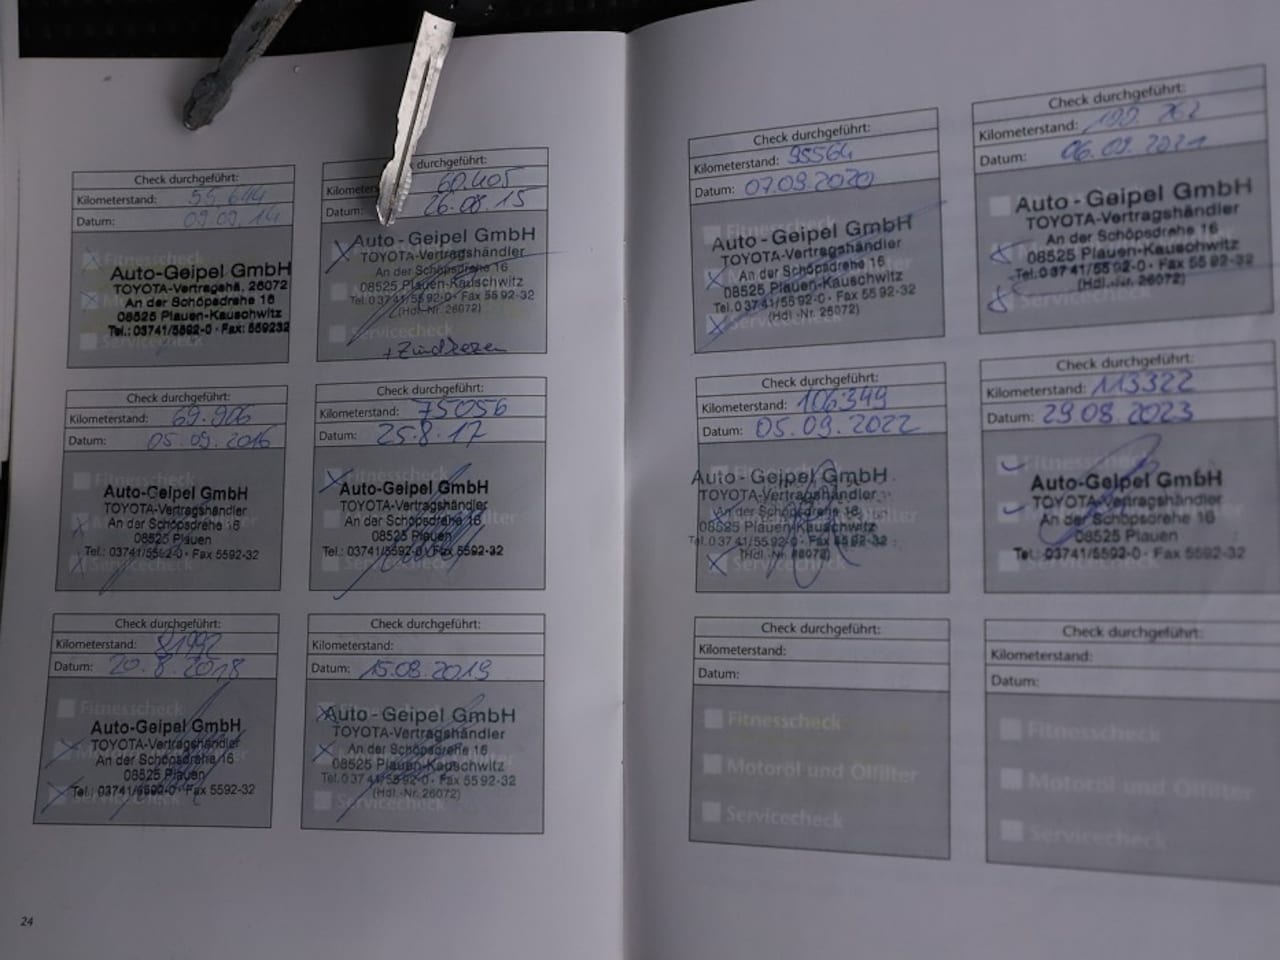 Check durchgeführt:
Kilometerstand: 55 644
Datum: 09.09.14
Fitnesscheck
Auto-Geipel GmbH
TOYOTA-Vertragshä. 26072
An der Schöpsdrehe 16
08525 Plauen-Kauschwitz
Tel.: 03741/5592-0 · Fax: 559232
Servicecheck
durchgeführt:
60.405
Datum: 26.08.15
Auto-Geipel GmbH
TOYOTA-Vertragshändler
An der Schöpsdrehe 16
08525 Plauen-Kauschwitz
Tel. 0 37 41/55 92-0 · Fax 55 92-32
(Hdl.-Nr. 26072)
Servicecheck
+Zündkerzen
Check durchgeführt:
Kilometerstand: 69.906
Datum: 05.09.2016
Fitnesscheck
Auto-Geipel GmbH
TOYOTA-Vertragshändler
An der Schöpsdrehe 16
08525 Plauen
Tel.: 03741/5592-0 · Fax 5592-32
Servicecheck
Check durchgeführt:
Kilometerstand: 75056
Datum: 25.8.17
Fitnesscheck
Auto-Geipel GmbH
TOYOTA-Vertragshändler
An der Schöpsdrehe 16
08525 Plauen
Tel.: 03741/5592-0 · Fax 5592-32
Servicecheck
Check durchgeführt:
Kilometerstand: 81992
Datum: 20.8.2018
Fitnesscheck
Auto-Geipel GmbH
TOYOTA-Vertragshändler
An der Schöpsdrehe 16
08525 Plauen
Tel.: 03741/5592-0 · Fax 5592-32
Check durchgeführt:
Kilometerstand:
Datum: 15.08.2019
Auto-Geipel GmbH
TOYOTA-Vertragshändler
An der Schöpsdrehe 16
08525 Plauen-Kauschwitz
Tel. 0 37 41/55 92-0 · Fax 55 92-32
(Hdl.-Nr. 26072)
Servicecheck
24
Check durchgeführt:
Kilometerstand: 95564
Datum: 07.09.2020
Fitnesscheck
Auto-Geipel GmbH
TOYOTA-Vertragshändler
An der Schöpsdrehe 16
08525 Plauen-Kauschwitz
Tel. 0 37 41/55 92-0 · Fax 55 92-32
(Hdl.-Nr. 26072)
Servicecheck
Check durchgeführt:
Kilometerstand: 100.262
Datum: 06.09.2021
Auto-Geipel GmbH
TOYOTA-Vertragshändler
An der Schöpsdrehe 16
08525 Plauen-Kauschwitz
Tel. 0 37 41/55 92-0 · Fax 55 92-32
(Hdl.-Nr. 26072)
Servicecheck
Check durchgeführt:
Kilometerstand: 106349
Datum: 05.09.2022
Auto-Geipel GmbH
TOYOTA-Vertragshändler
An der Schöpsdrehe 16
08525 Plauen-Kauschwitz
Tel. 0 37 41/55 92-0 · Fax 55 92-32
(Hdl.-Nr. 26072)
Servicecheck
Check durchgeführt:
Kilometerstand: 113322
Datum: 29.08.2023
Fitnesscheck
Auto-Geipel GmbH
TOYOTA-Vertragshändler
An der Schöpsdrehe 16
08525 Plauen
Tel.: 03741/5592-0 · Fax 5592-32
Servicecheck
Check durchgeführt:
Kilometerstand:
Datum:
Fitnesscheck
Motoröl und Ölfilter
Servicecheck
Check durchgeführt:
Kilometerstand:
Datum:
Fitnesscheck
Motoröl und Ölfilter
Servicecheck